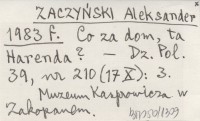 ZACZYŃSKI Aleksander
1983 f. Co za dom, ta
Harenda? — Dz. Pol.
39, nr 210 (17 X): 3.
Muzeum Kasprowicza w
Zakopanem.